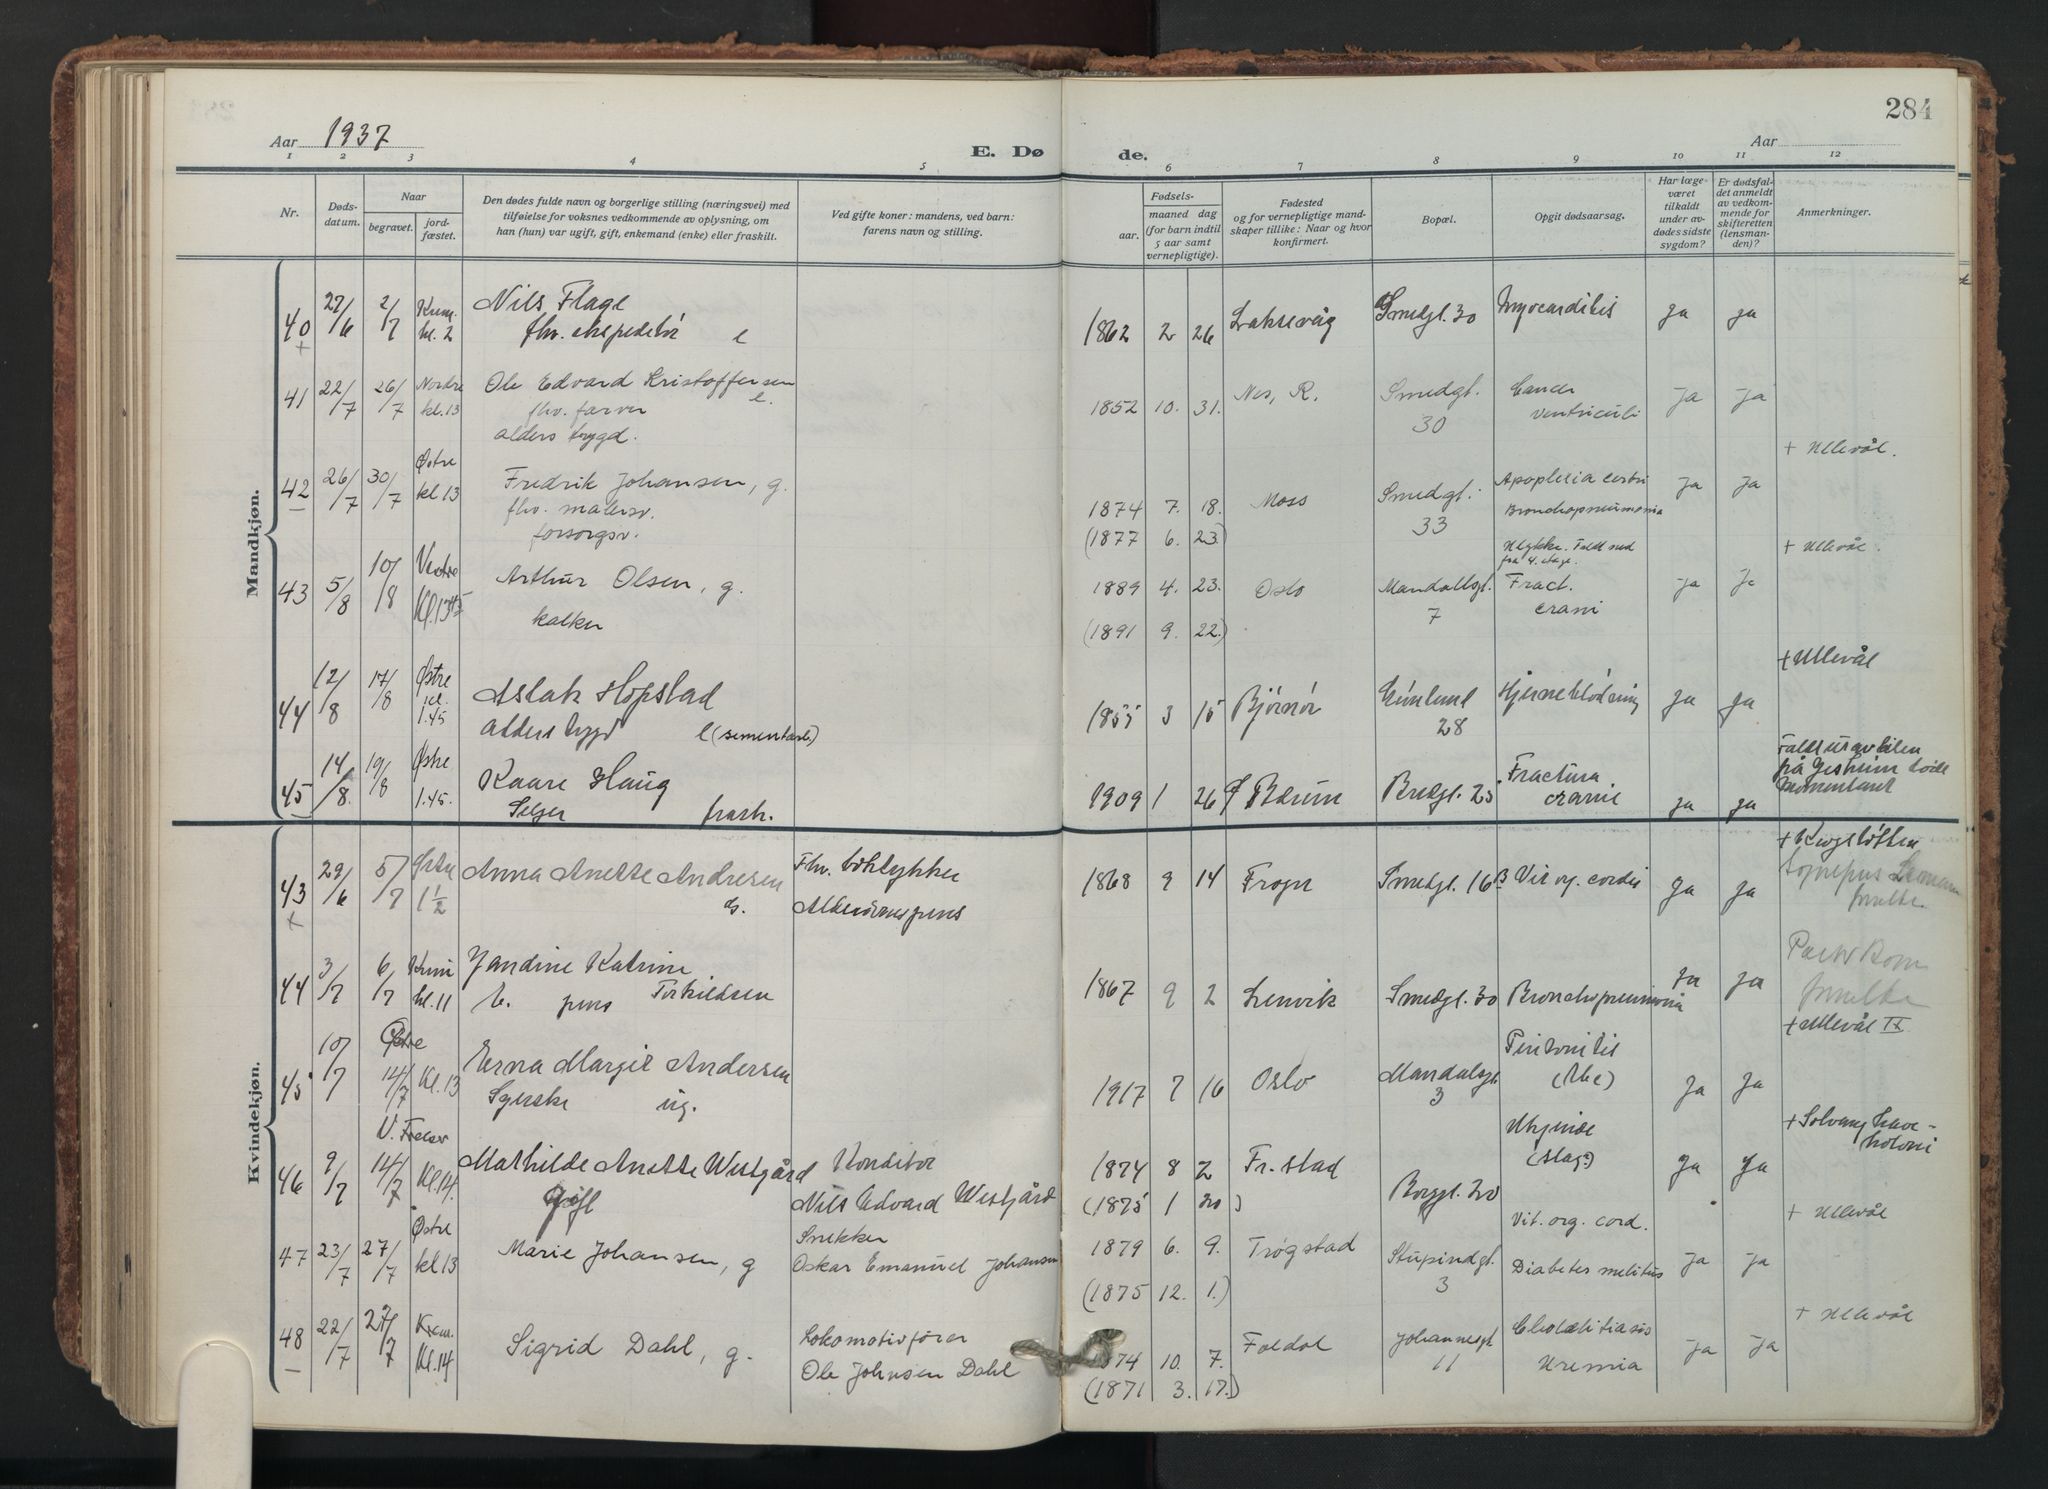 284
Aar 1937
E. Dø de.
Aar
1 2 3 4 5 6 7 8 9 10 11 12
Nr.
Døds-
datum.
Naar
begravet.
jord-
fæstet.
Den dødes fulde navn og borgerlige stilling (næringsvei) med
tilføielse for voksnes vedkommende av oplysning, om
han (hun) var ugift, gift, enkemand (enke) eller fraskilt.
Ved gifte koner: mandens, ved barn:
farens navn og stilling.
Fødsels-
aar.
maaned dag
(for barn indtil
5 aar samt
vernepligtige).
Fødested
og for vernepligtige mand-
skaper tillike: Naar og hvor
konfirmert.
Bopæl.
Opgit dødsaarsag.
Har læge
været
tilkaldt
under av-
dødes sidste
sygdom?
Er dødsfal-
det anmeldt
av vedkom-
mende for
skifteretten
(lensman-
den)?
Anmerkninger.
Mandkjøn.
40 27/6 2/7 Krem. kl. 2 Nils Flage 1862 2 26 Laksevåg Smedgt. 30 Myocarditis ja ja
+ fhv. ekspeditør e
41 22/7 26/7 Nordre kl. 13 Ole Edvard Kristoffersen e. 1852 10. 31. Nes, R. Smedgt. 30 Cancer ventriculi ja ja
fhv. farver
alderstrygd.
+ Ullevål.
42 26/7 30/7 Østre kl 13 Fredrik Johansen, g. 1874 7. 18. Moss Smedgt. 33 Apoplexia cerebri ja ja
fhv. malersv. Bronchopneumonia
forsorgsv. (1877 6. 23.)
Ulykke. Falt ned
fra 4. etage.
+ Ullevål.
43 5/8 10/8 Vestre Kl. 13 45 Arthur Olsen, g. 1889 4. 23. Oslo Mandallsgt. 7 Fract. crani ja ja
kalker (1891 9. 22.)
+ Ullevål
44 12/8 17/8 Østre kl. 1.45 Aslak Hopstad 1855 3 15 Bjørnør Grønland 28 Hjerneblødning ja ja
Alderstrygd e (sementarb.)
Faldt ut av bilen
på Jesheim døde
momentant
45 14/8. 19/8 Østre 1.45. Kaare Haug 1909 1 26 Ø Bærum Bredgt. 25 Fractura cranie ja ja
Selger frask.
Kvindekjøn.
+ Krogstøtten
43 29/6 5/7 Østre 1 1/2 Anna Anette Andresen Fhv. boktykker 1868 9 14 Frogn Smedgt. 16 B Vit og. cordis ja ja
+ g. Alderdomspens
44 3/7 6/7 Krem kl. 11 Jandine Katrine 1867 9 2 Lenvik Smedgt. 30 Bronchopneumonia ja ja
e. pens Torkildsen
+ Ullevål IX
45 10/7 14/7 Østre Kl. 13 Erna Margit Andersen 1917 7 16 Oslo Mandalsgt 3 Peritonitis (tbc) ja ja
Syerske ug.
+ Solvang have-
koloni
46 9/7 14/7 V. Frelser Kl. 14. Mathilde Anette Westgård Konditor 1874 8 2 Fr.stad Borggt. 20 Utgjende (slag?) ja ja
Gift Nils Edvard Westgård (1875 1 20)
+ Ullevål
47 23/7 27/7 Østre kl 13 Marie Johansen, g Snekker 1879 6. 9. Trøgstad Stupindgt. 3 Vit. org. cord. ja ja
Oskar Emanuel Johansen (1875 12. 1.) Diabetes melitus
+ Ullevål
48 22/7 27/7 Krem. Kl. 14 Sigrid Dahl, g. Lokomotivfører 1874 10. 7. Foldal Johannesgt 11 Cholelitiasis ja ja
Ole Johnsen Dahl (1871 3. 17.) Uremia